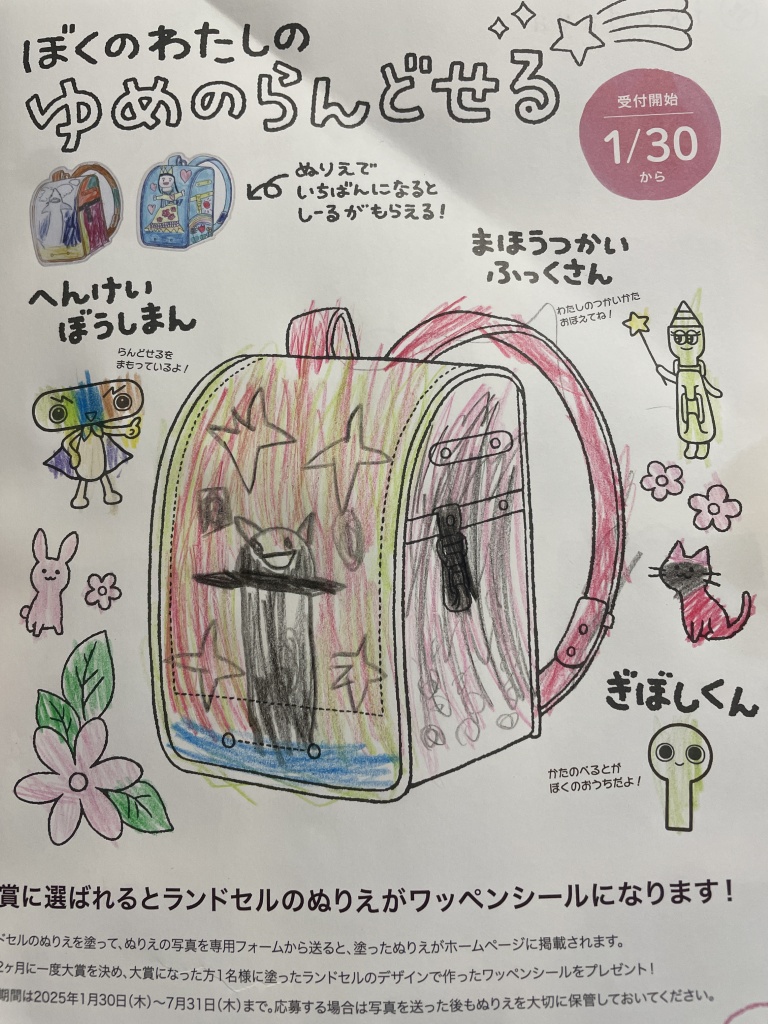 ぼくのわたしの
ゆめのらんどせる
受付開始
1/30
から
ぬりえで
いちばんになると
しーるがもらえる!
まほうつかい
ふっくさん
わたしのつかいかた
おぼえてね!
へんけい
ぼうしまん
らんどせるを
まもっているよ!
ぎぼしくん
かたのべるとが
ぼくのおうちだよ!
賞に選ばれるとランドセルのぬりえがワッペンシールになります!
ドセルのぬりえを塗って、ぬりえの写真を専用フォームから送ると、塗ったぬりえがホームページに掲載されます。
2ヶ月に一度大賞を決め、大賞になった方1名様に塗ったランドセルのデザインで作ったワッペンシールをプレゼント!
期間は2025年1月30日(木)〜7月31日(木)まで。応募する場合は写真を送った後もぬりえを大切に保管しておいてください。